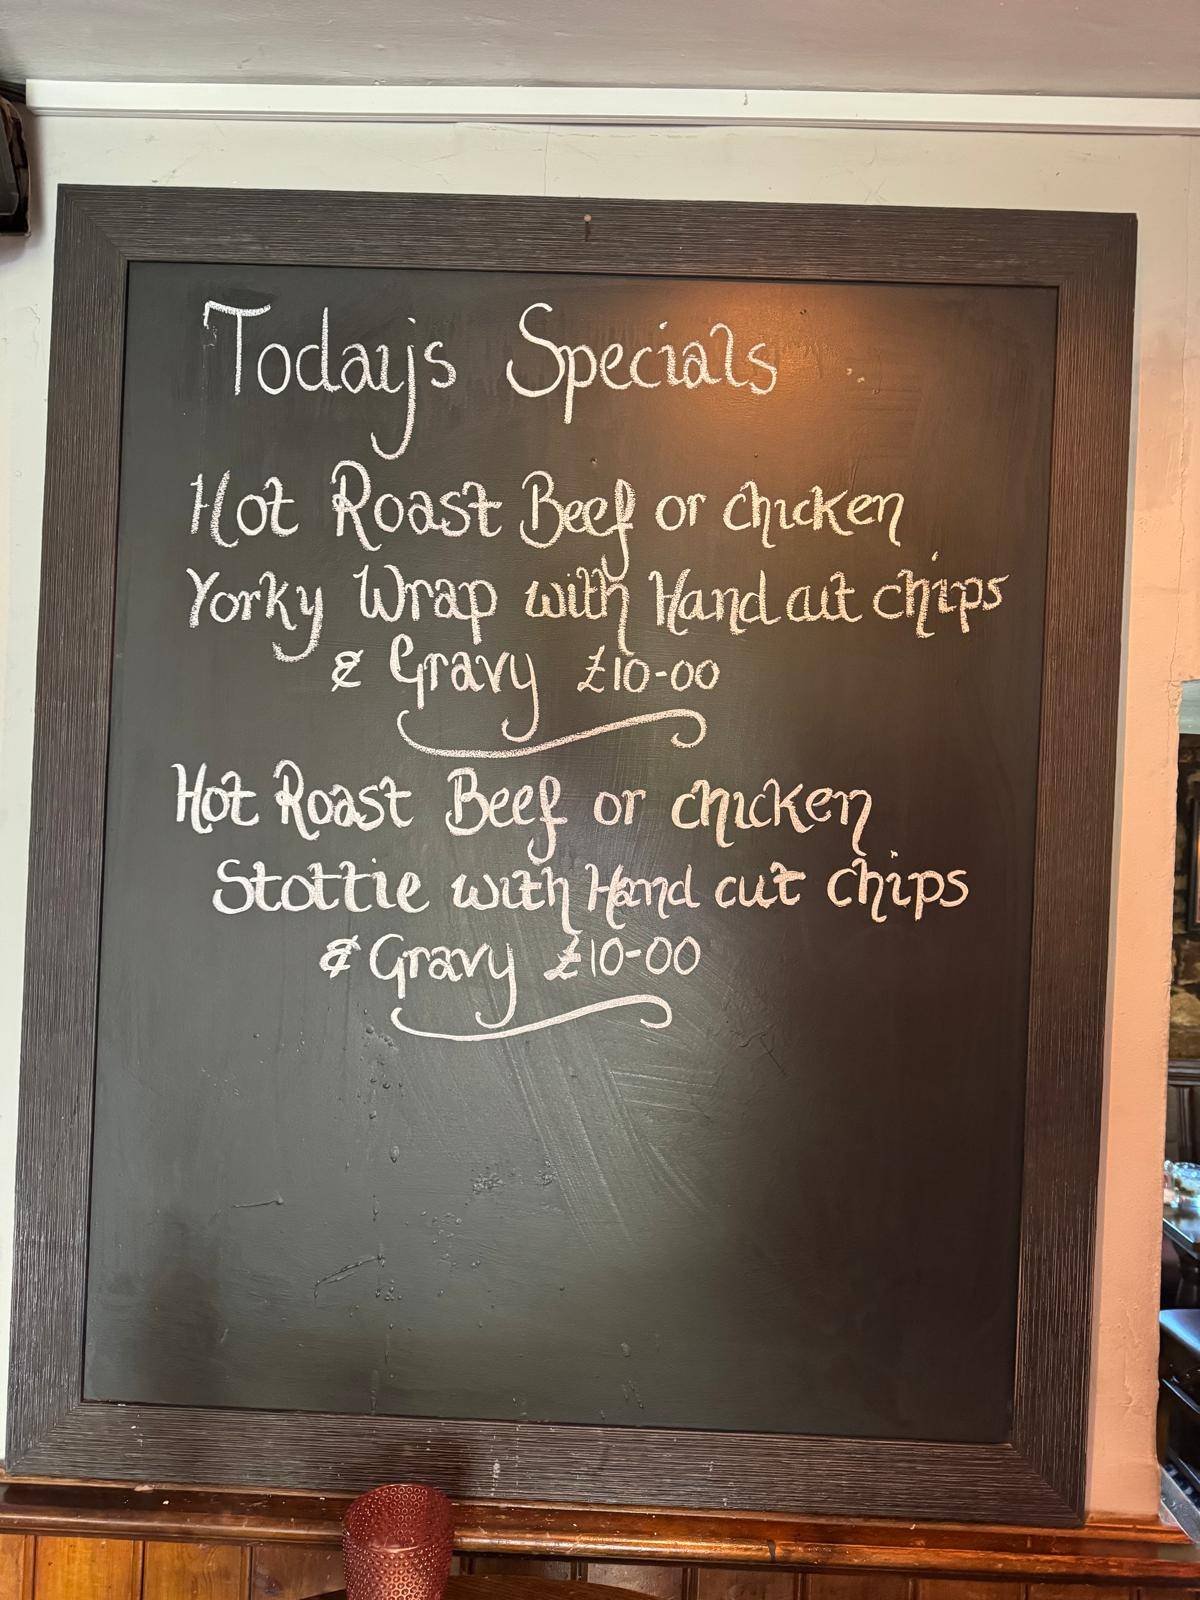 Todays Specials
Hot Roast Beef or chicken
Yorky Wrap with Hand cut chips
& Gravy £10-00
Hot Roast Beef or chicken
Stottie with Hand cut chips
& Gravy £10-00